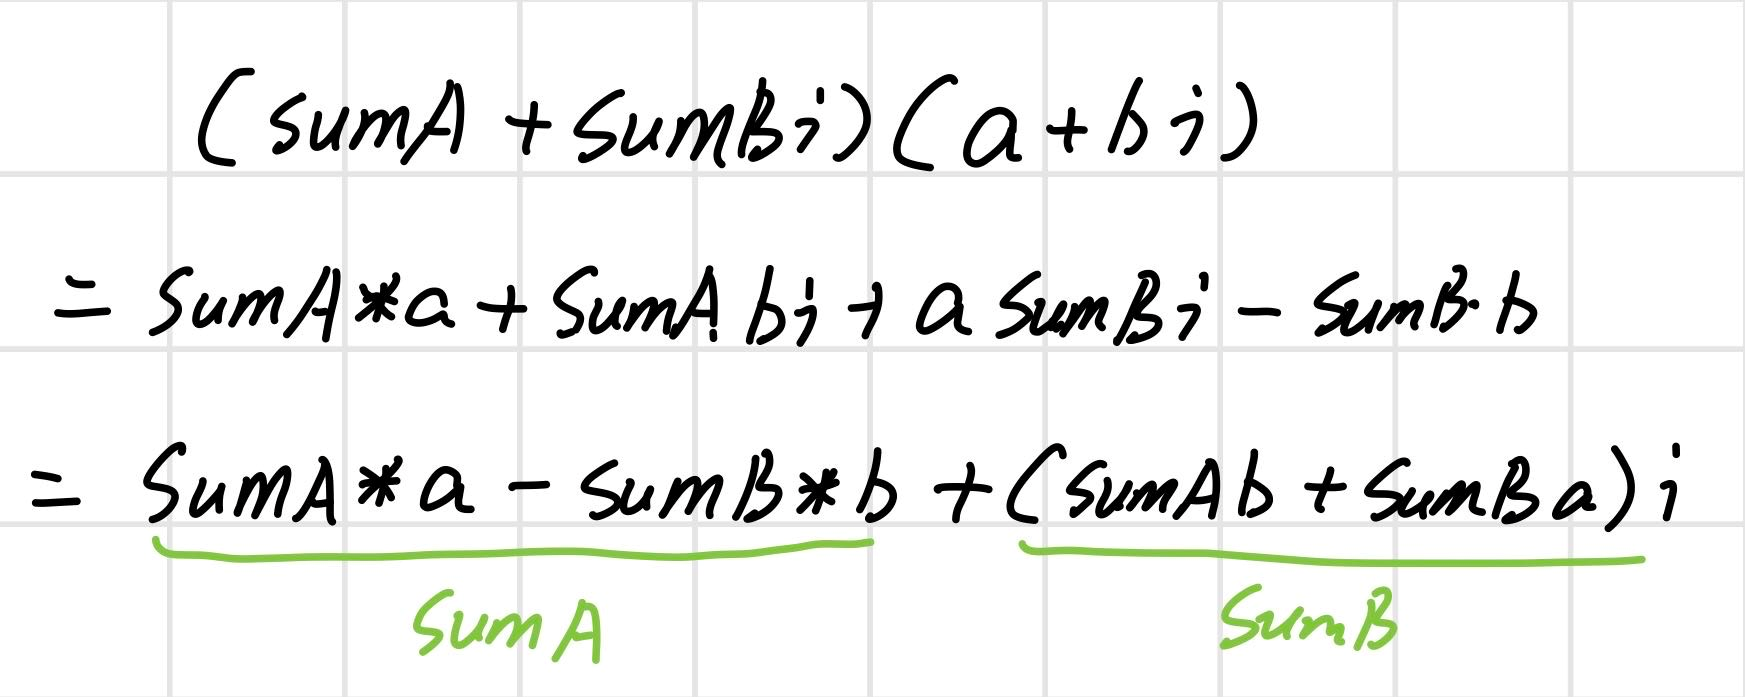 (sumA + sumBi)(a + bi)
= sumA*a + sumA bi + a sumBi - sumB·b
= sumA*a - sumB*b + (sumAb + sumBa)i
sumA sumB